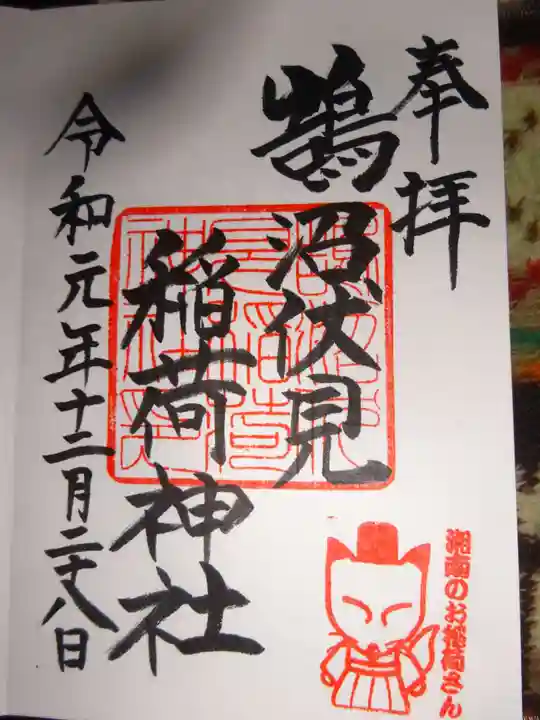 奉拝
鵠沼伏見
稲荷神社
令和元年十二月二十八日
湘南のお稲荷さん